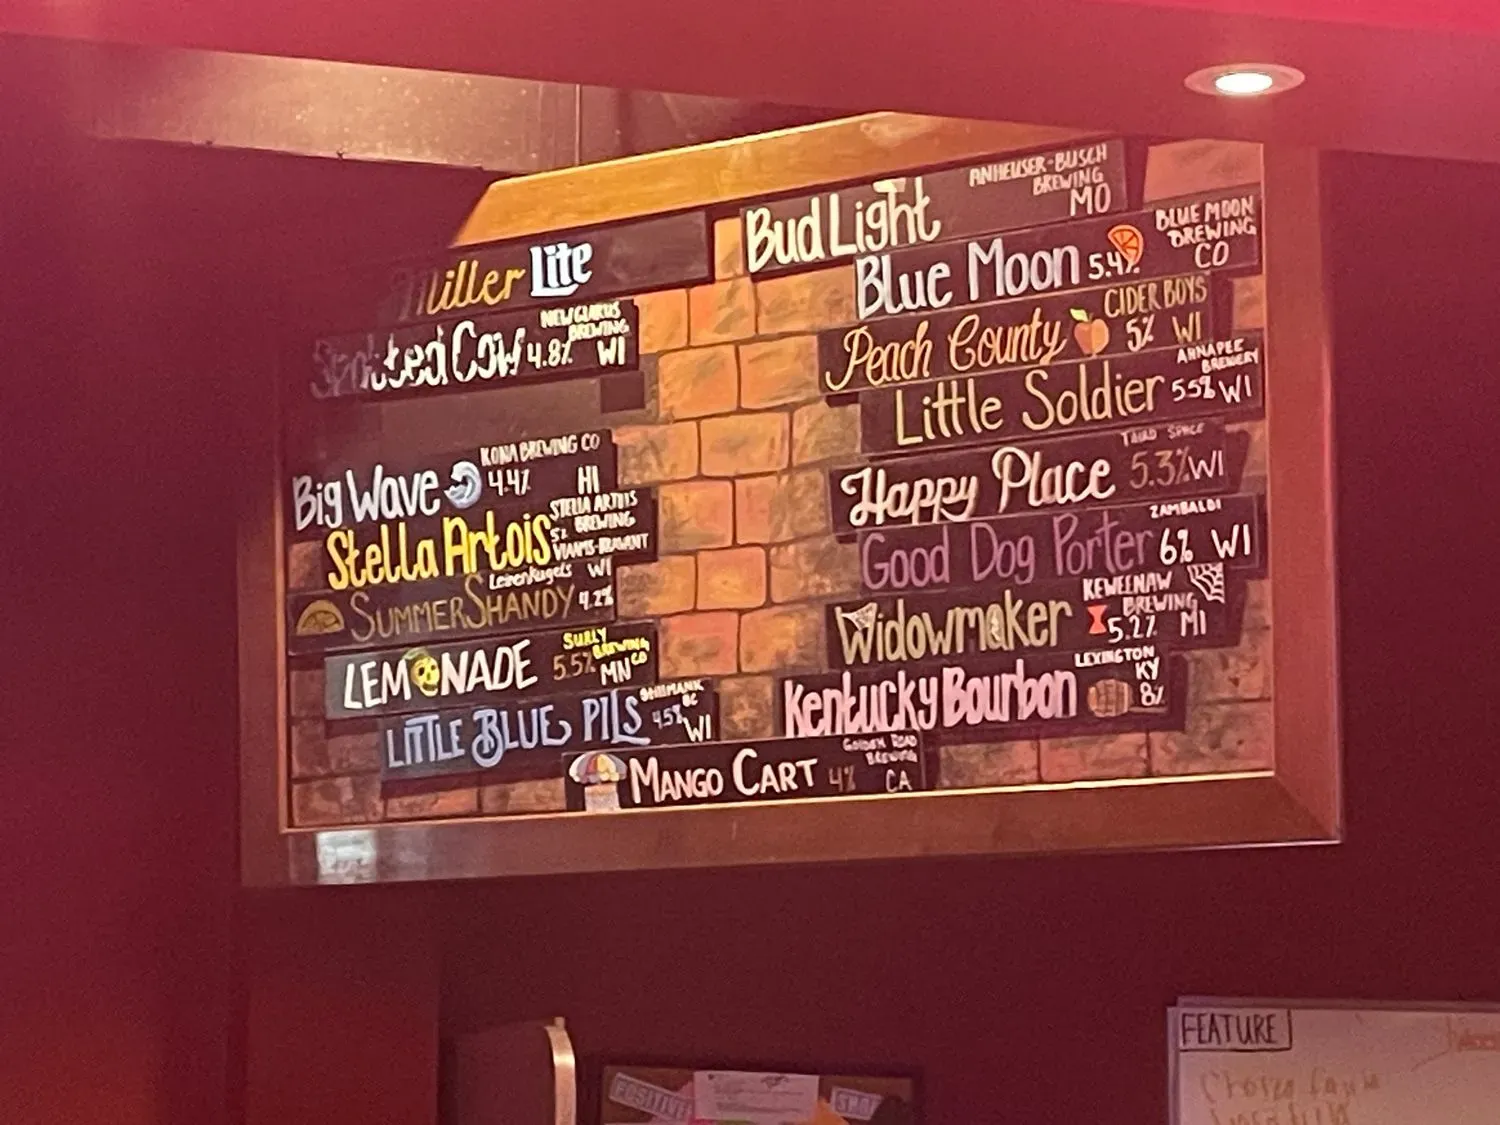 Miller Lite
Spotted Cow 4.8% NEW GLARUS BREWING WI
Big Wave 4.4% KONA BREWING CO HI
Stella Artois STELLA ARTOIS 5% BREWING
SUMMER SHANDY Leinenkugels WI 4.2%
LEMONADE 5.5% SURLY BREWING CO MN
LITTLE BLUE PILS 4.5% WI
MANGO CART 4% GOLDEN ROAD BREWING CA
Bud Light ANHEUSER-BUSCH BREWING MO
Blue Moon 5.4% BLUE MOON BREWING CO
Peach County CIDER BOYS 5% WI
Little Soldier 5.5% ANNAPEE BREWERY WI
Happy Place THIRD SPACE 5.3% WI
Good Dog Porter ZAMBALDI 6% WI
Widowmaker KEWEENAW BREWING 5.2% MI
Kentucky Bourbon LEXINGTON KY 8%
FEATURE
POSITIVE